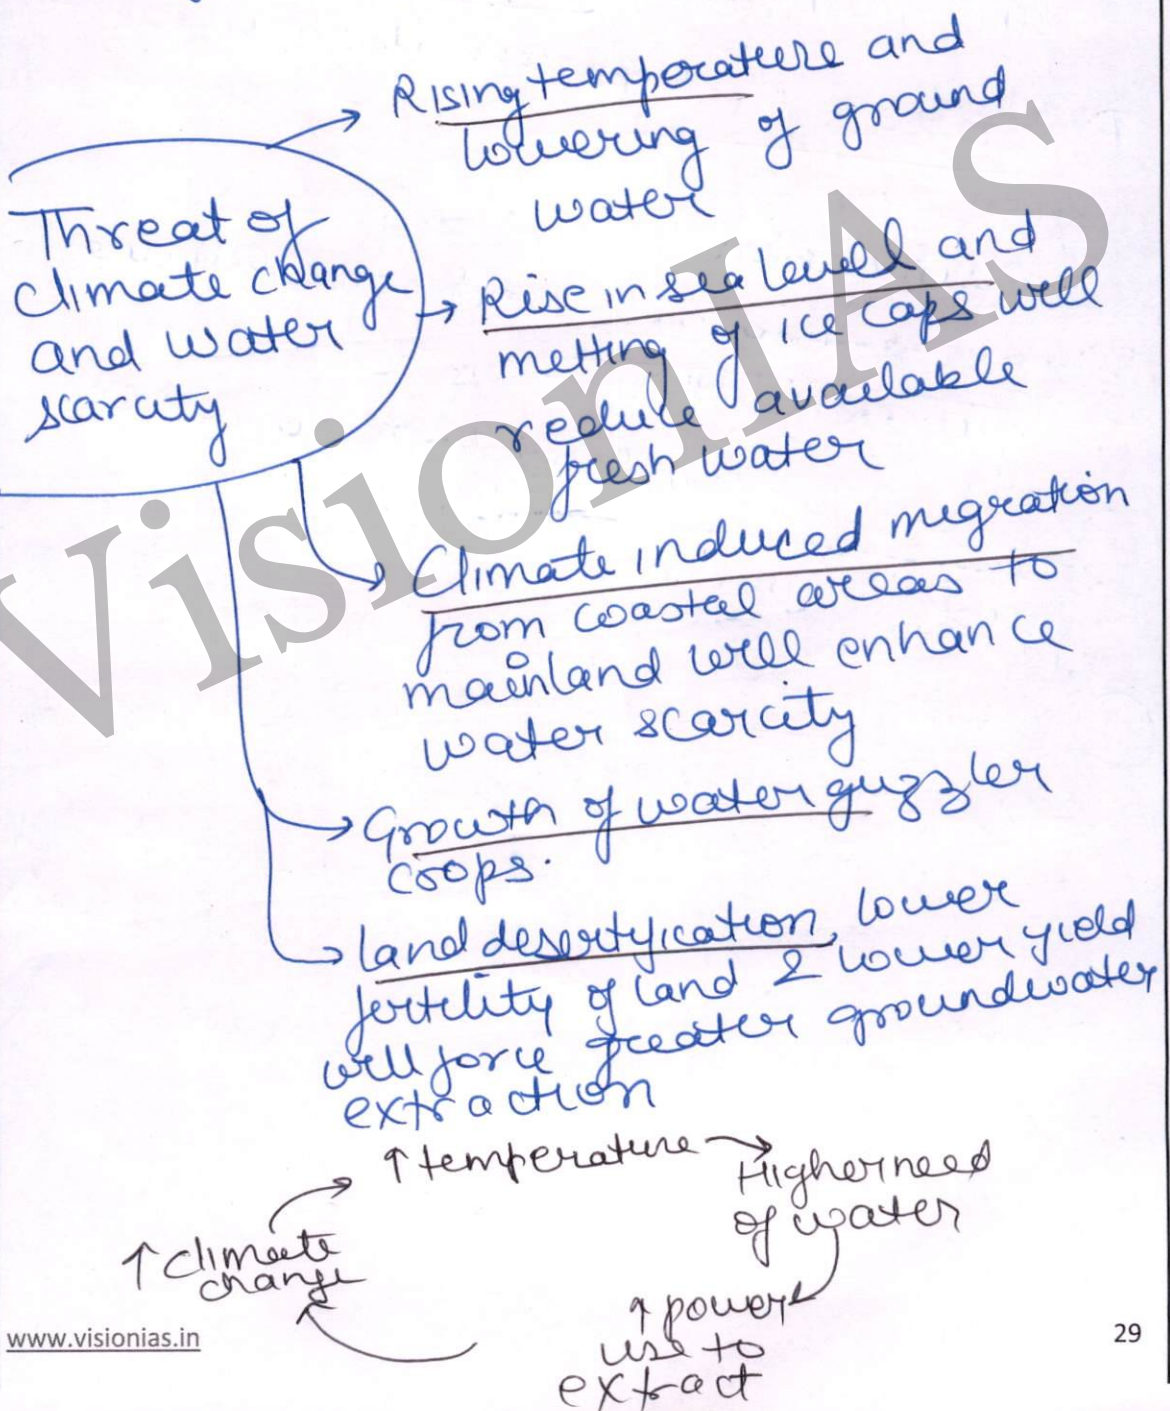 Threat of
climate change
and water
scarcity
Rising temperature and
lowering of ground
water
Rise in sea level and
melting of ice caps will
reduce available
fresh water
Climate induced migration
from coastal areas to
mainland will enhance
water scarcity
Growth of water guzzler
crops.
land desertification, lower
fertility of land & lower yield
will force greater groundwater
extraction
↑ temperature
Higher need
of water
↑ power
use to
extract
↑ climate
change
VisionIAS
www.visionias.in
29